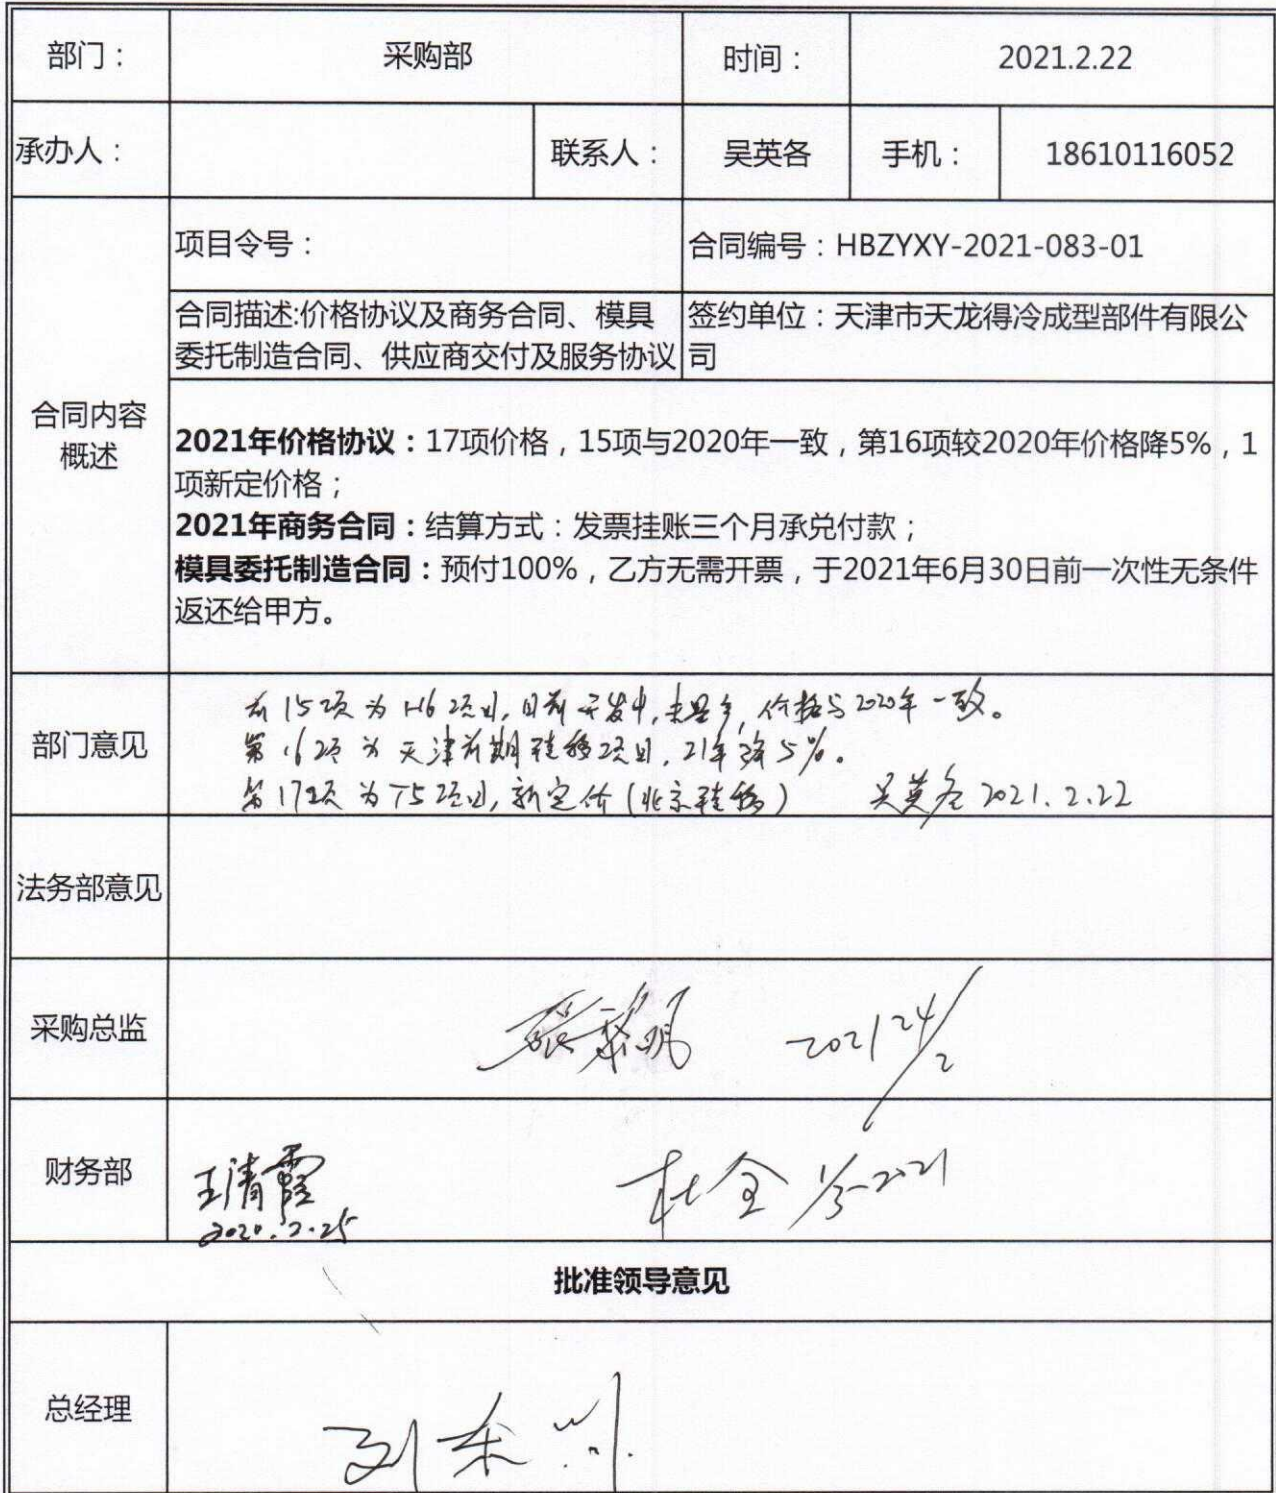 部门： 采购部 时间： 2021.2.22
承办人： 联系人： 吴英各 手机： 18610116052
项目令号： 合同编号：HBZYXY-2021-083-01
合同描述:价格协议及商务合同、模具
委托制造合同、供应商交付及服务协议
签约单位：天津市天龙得冷成型部件有限公
司
合同内容
概述
2021年价格协议：17项价格，15项与2020年一致，第16项较2020年价格降5%，1
项新定价格；
2021年商务合同：结算方式：发票挂账三个月承兑付款；
模具委托制造合同：预付100%，乙方无需开票，于2021年6月30日前一次性无条件
返还给甲方。
部门意见
前15项为H6项目,目前开发中,未量产,价格与2020年一致。
第16项为天津前期转移项目,21年降5%。
第17项为T5项目,新定价(北京转移) 吴英各 2021.2.22
法务部意见
采购总监 2021 24/2
财务部 王清霞 杜全 1/3-2021
2020.2.25
批准领导意见
总经理 刘东川